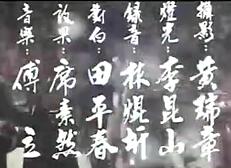 攝影：黃瑞章
燈光：李昆山
錄音：林焜圻
對白：田平春
效果：席素然
音樂：傅立